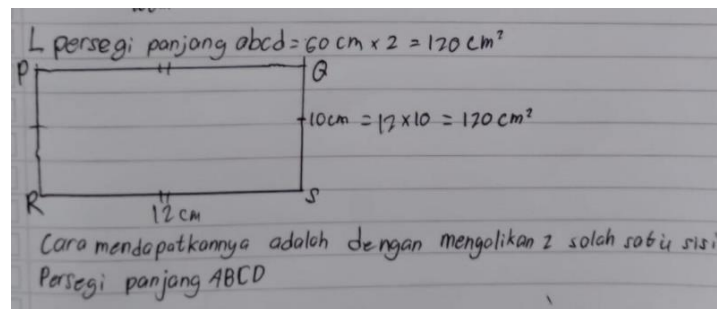 L persegi panjang abcd = 60 cm x 2 = 120 cm²
P Q
10 cm = 12 x 10 = 120 cm²
R S
12 cm
Cara mendapatkannya adalah dengan mengalikan 2 salah satu sisi
Persegi panjang ABCD